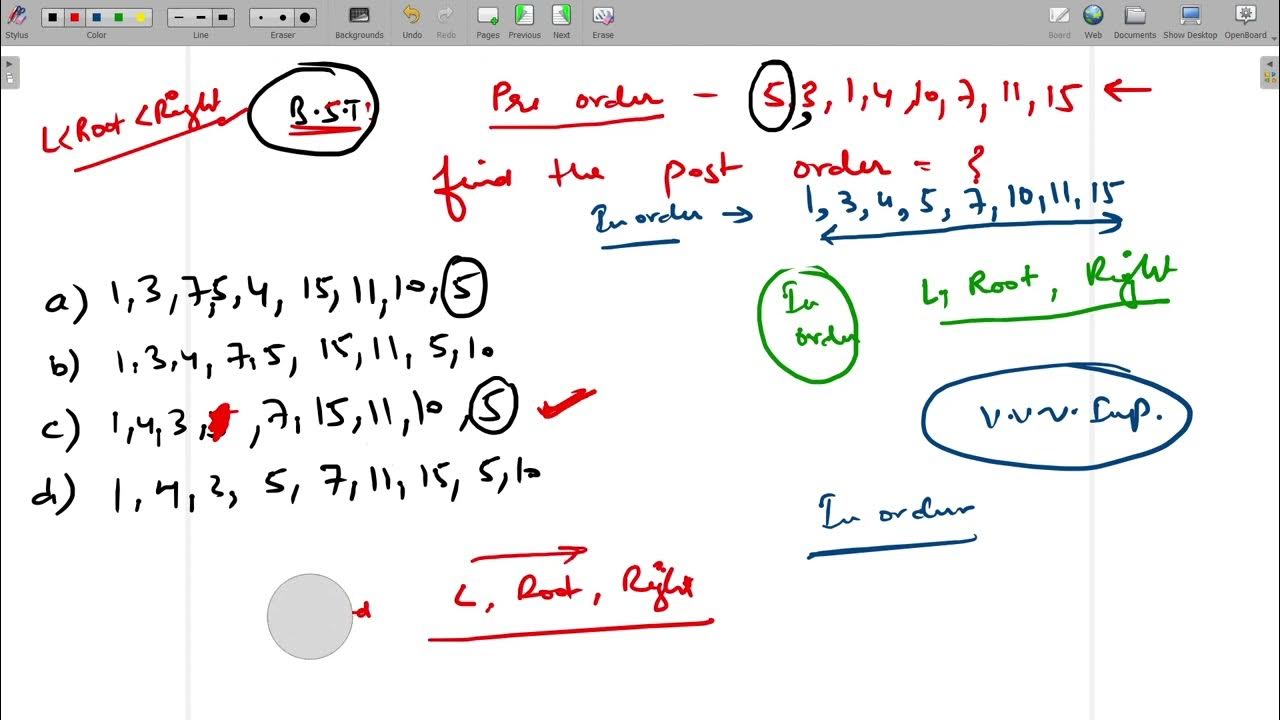 Stylus Color Line Eraser Backgrounds Undo Redo Pages Previous Next Erase Board Web Documents Show Desktop OpenBoard
L<Root<Right
B.S.T
Pre order - 5,3,1,4,10,7,11,15
find the post order = {
In order → 1,3,4,5,7,10,11,15
a) 1,3,7,5,4,15,11,10,5
In order
L, Root, Right
b) 1,3,4,7,5,15,11,5,10
c) 1,4,3,,7,15,11,10,5
V.V.V.Imp.
d) 1,4,3,5,7,11,15,5,10
In order
L, Root, Right
d